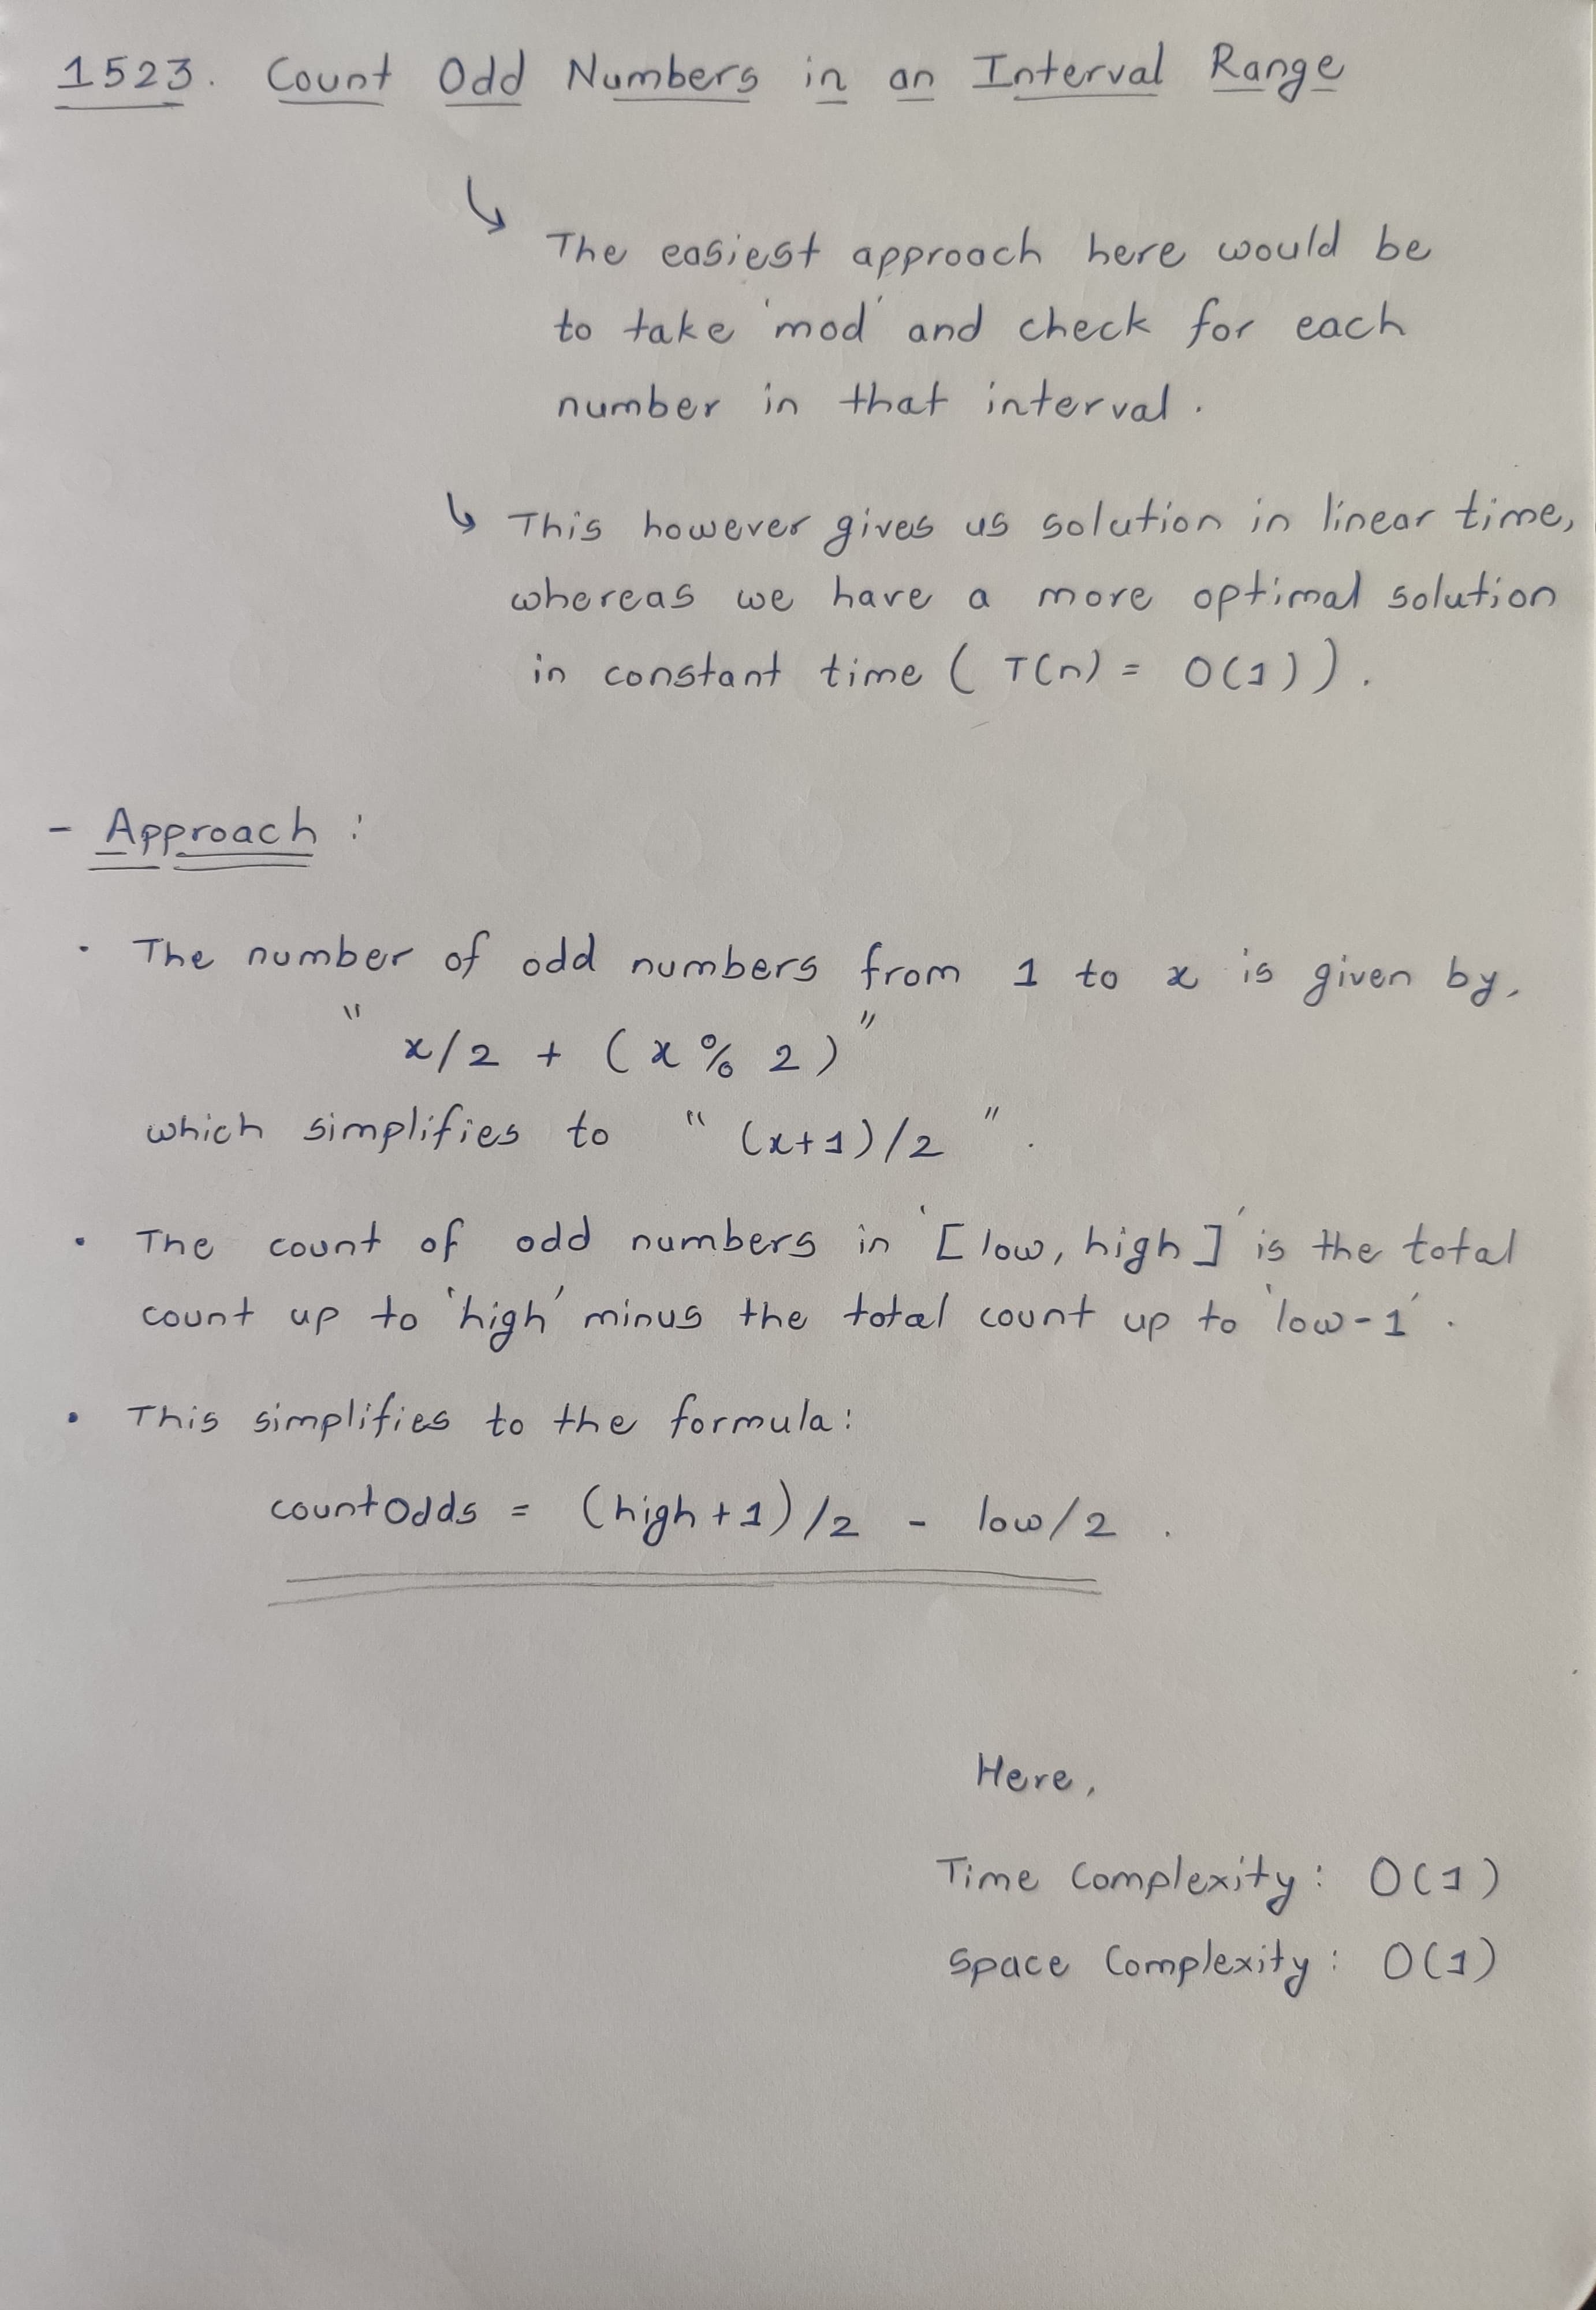 1523. Count Odd Numbers in an Interval Range
↳ The easiest approach here would be
to take 'mod' and check for each
number in that interval.
↳ This however gives us solution in linear time,
whereas we have a more optimal solution
in constant time ( T(n) = O(1) ).
- Approach :
• The number of odd numbers from 1 to x is given by,
" x/2 + ( x % 2 ) "
which simplifies to " (x+1)/2 ".
• The count of odd numbers in '[low, high]' is the total
count up to 'high' minus the total count up to 'low-1'.
• This simplifies to the formula:
countOdds = (high+1)/2 - low/2 .
Here,
Time Complexity : O(1)
Space Complexity : O(1)